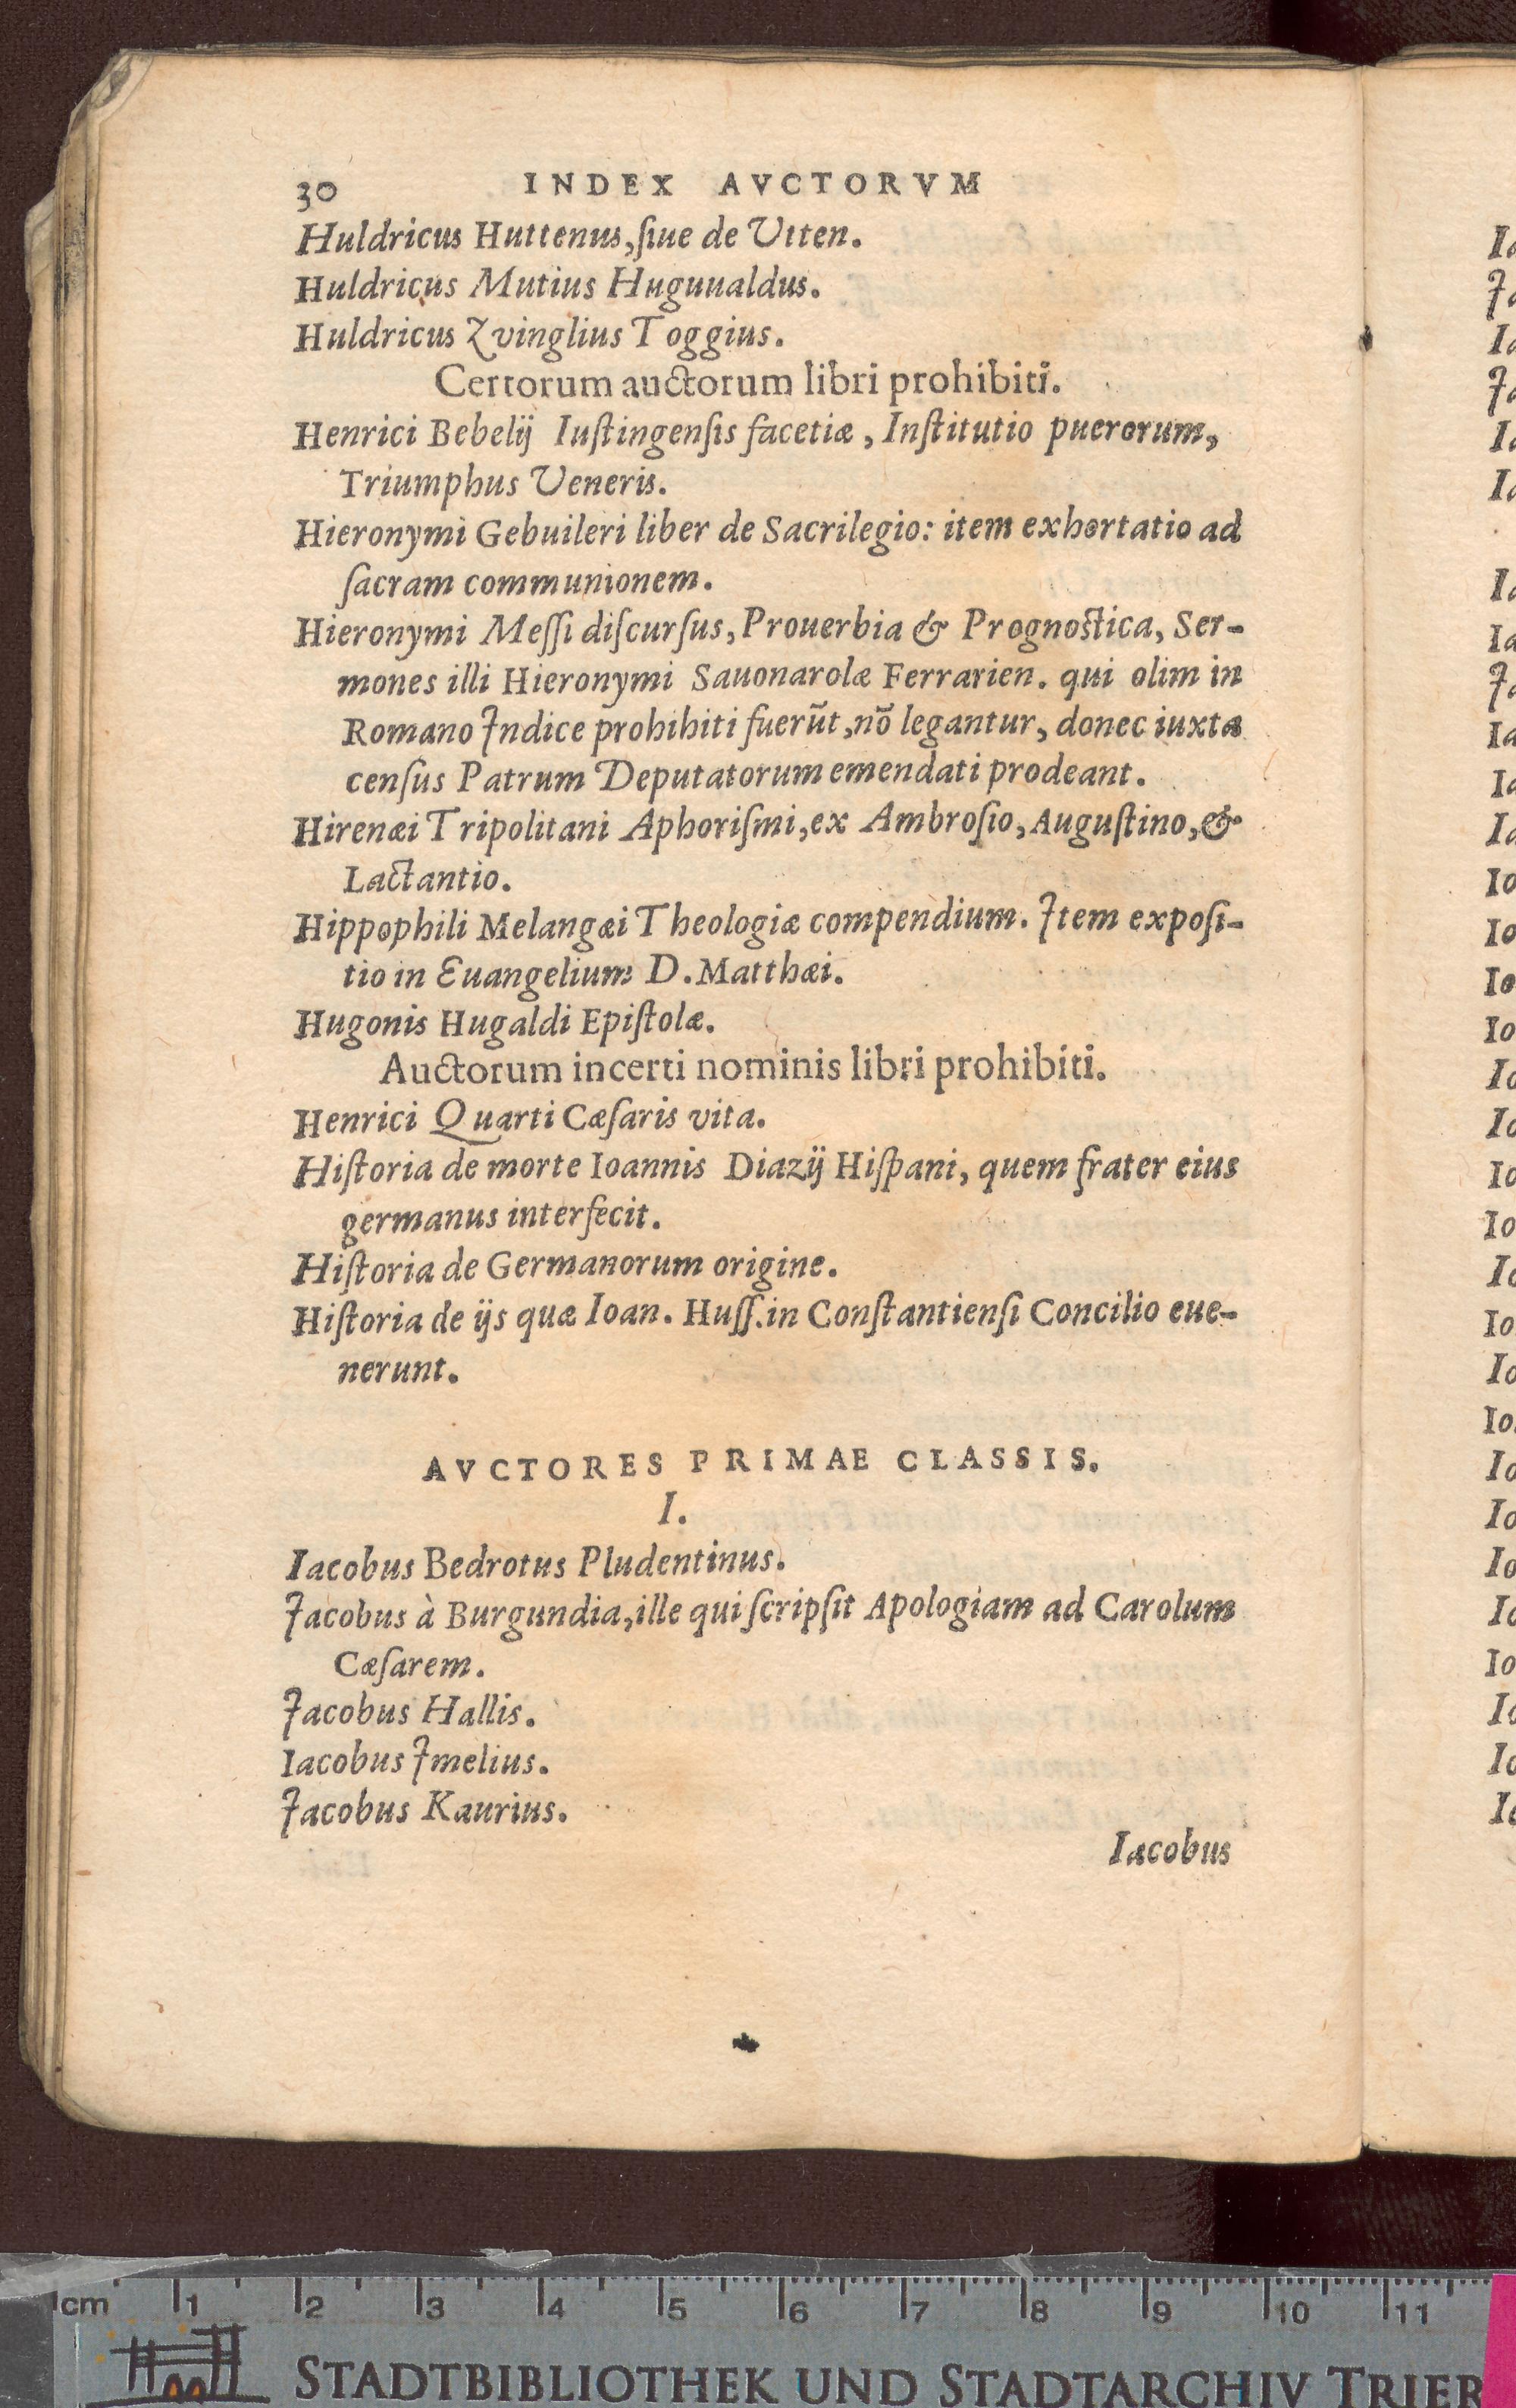 30 INDEX AVCTORVM
Huldricus Huttenus, ſiue de Vtten.
Huldricus Mutius Huguualdus.
Huldricus Zvinglius Toggius.
Certorum auctorum libri prohibiti.
Henrici Bebelij Iuſtingenſis facetiæ, Inſtitutio puerorum,
Triumphus Veneris.
Hieronymi Gebuileri liber de Sacrilegio: item exhortatio ad
ſacram communionem.
Hieronymi Meſſi diſcurſus, Prouerbia & Prognoſtica, Ser-
mones illi Hieronymi Sauonarolæ Ferrarien. qui olim in
Romano Indice prohibiti fuerūt, nō legantur, donec iuxta
cenſus Patrum Deputatorum emendati prodeant.
Hirenæi Tripolitani Aphoriſmi, ex Ambroſio, Auguſtino, &
Lactantio.
Hippophili Melangæi Theologiæ compendium. Item expoſi-
tio in Euangelium D. Matthæi.
Hugonis Hugaldi Epiſtolæ.
Auctorum incerti nominis libri prohibiti.
Henrici Quarti Cæſaris vita.
Hiſtoria de morte Ioannis Diazij Hiſpani, quem frater eius
germanus interfecit.
Hiſtoria de Germanorum origine.
Hiſtoria de ijs quæ Ioan. Huſſ. in Conſtantienſi Concilio eue-
nerunt.
AVCTORES PRIMAE CLASSIS.
I.
Iacobus Bedrotus Pludentinus.
Iacobus à Burgundia, ille qui ſcripſit Apologiam ad Carolum
Cæſarem.
Iacobus Hallis.
Iacobus Imelius.
Iacobus Kaurius.
Iacobus
cm 1 2 3 4 5 6 7 8 9 10 11
STADTBIBLIOTHEK UND STADTARCHIV TRIER